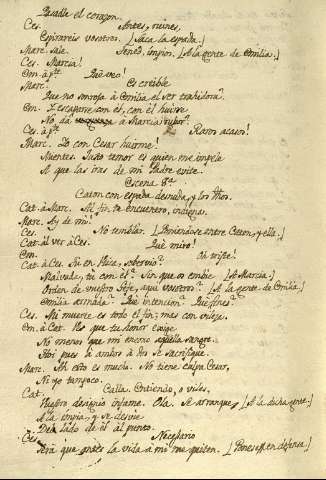 Pasadle el corazon.
Ces. Antes, ruines,
Espirareis vosotros. [Saca la espada.]
Marc. sale. Tened, impios. [A la gente de Emilia.]
Ces. Marcia!
Em. à pte. Què veo!
Marc. Es creible
Que no sonroja à Emilia el ser traidora?
Em. I escaparse con èl, con èl huirse
No, dà à Marcia rubor?
Ces. à pte. Raros acasos!
Marc. Yo con Cesar huirme?
Mientes. Justo temor es quien me impele
A que las iras de mi Padre evite.
Escena 8.a
Caton con espada desnuda, y los dhos.
Cat. à Marc. Al fin te encuentro, indigna.
Marc. Ay de mi!
Ces. No tembleis. [Poniendose entre Caton, y ella.]
Cat. al ver à Ces. Què miro!
Em. Oh triste!
Cat. à Ces. Tu en Utica, sobervio?
Malvada, tù con el? Sin que os embie [A Marcia.]
Orden de vuestro Jefe, aqui vosotros? [A la gente de Emilia.]
Emilia armada? Què intencion? Què fines?
Ces. Mi muerte es todo el fin; mas con vileza.
Em. à Cat. Ps. que tu honor exige
No menos que mi encono aquella sangre.
Hoi pues à ambos à dos se sacrifique.
Marc. Ah esto es mucho. No tiene culpa Cesar,
Ni yo tampoco.
Cat. Calla. Entiendo, o viles,
Vuestro designio infame. Ola. Se arranque, [A la dicha gente.]
A la impia, y se desvie
Del lado de èl al punto.
Ces. Necesario
Serà que antes la vida à mi me quiten. [Ponese en defensa.]